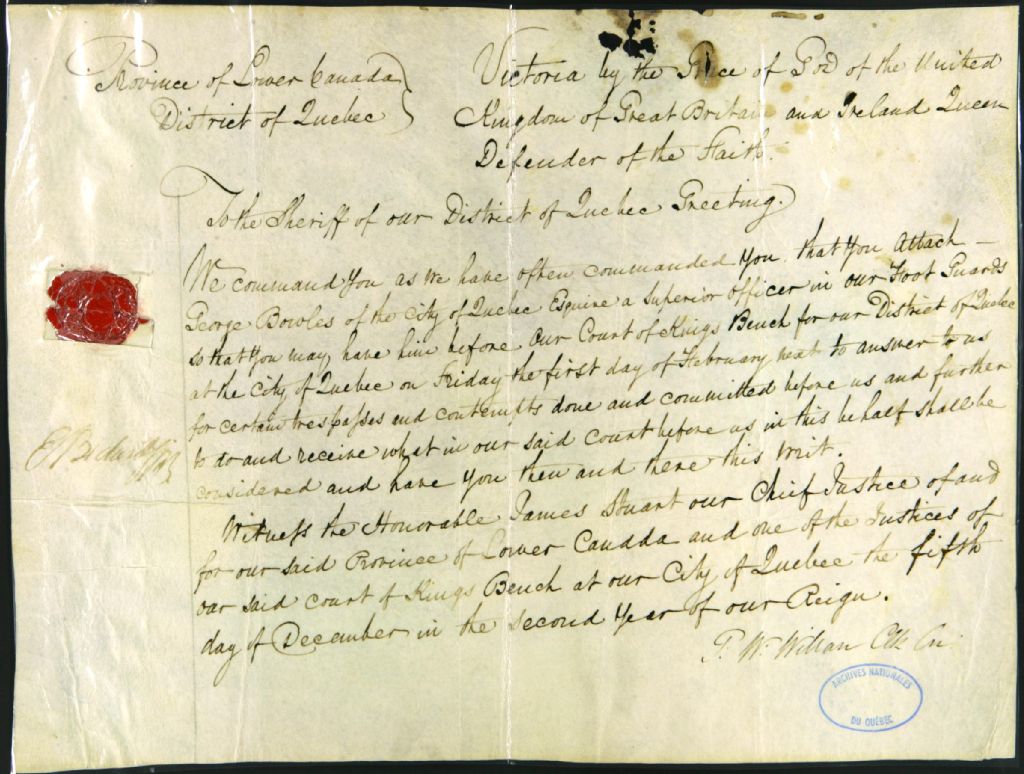 Province of Lower Canada
District of Quebec
Victoria by the Grace of God of the United
Kingdom of Great Britain and Ireland Queen
Defender of the Faith.
To the Sheriff of our District of Quebec Greeting.
We command You as we have often commanded You, that You Attach —
George Bowles of the City of Quebec Esquire a Superior Officer in our Foot Guards
so that You may have him before Our Court of Kings Bench for our District of Quebec
at the City of Quebec on Friday the first day of February next to answer to us
for certain trespasses and contempts done and committed before us and further
to do and receive what in our said Court before us in this behalf shall be
considered and have You then and there this Writ.
Witness the Honorable James Stuart our Chief Justice of and
for our said Province of Lower Canada and one of the Justices of
our said Court of Kings Bench at our City of Quebec the fifth
day of December in the second Year of our Reign.
W. Willan Clk
ARCHIVES NATIONALES
DU QUÉBEC